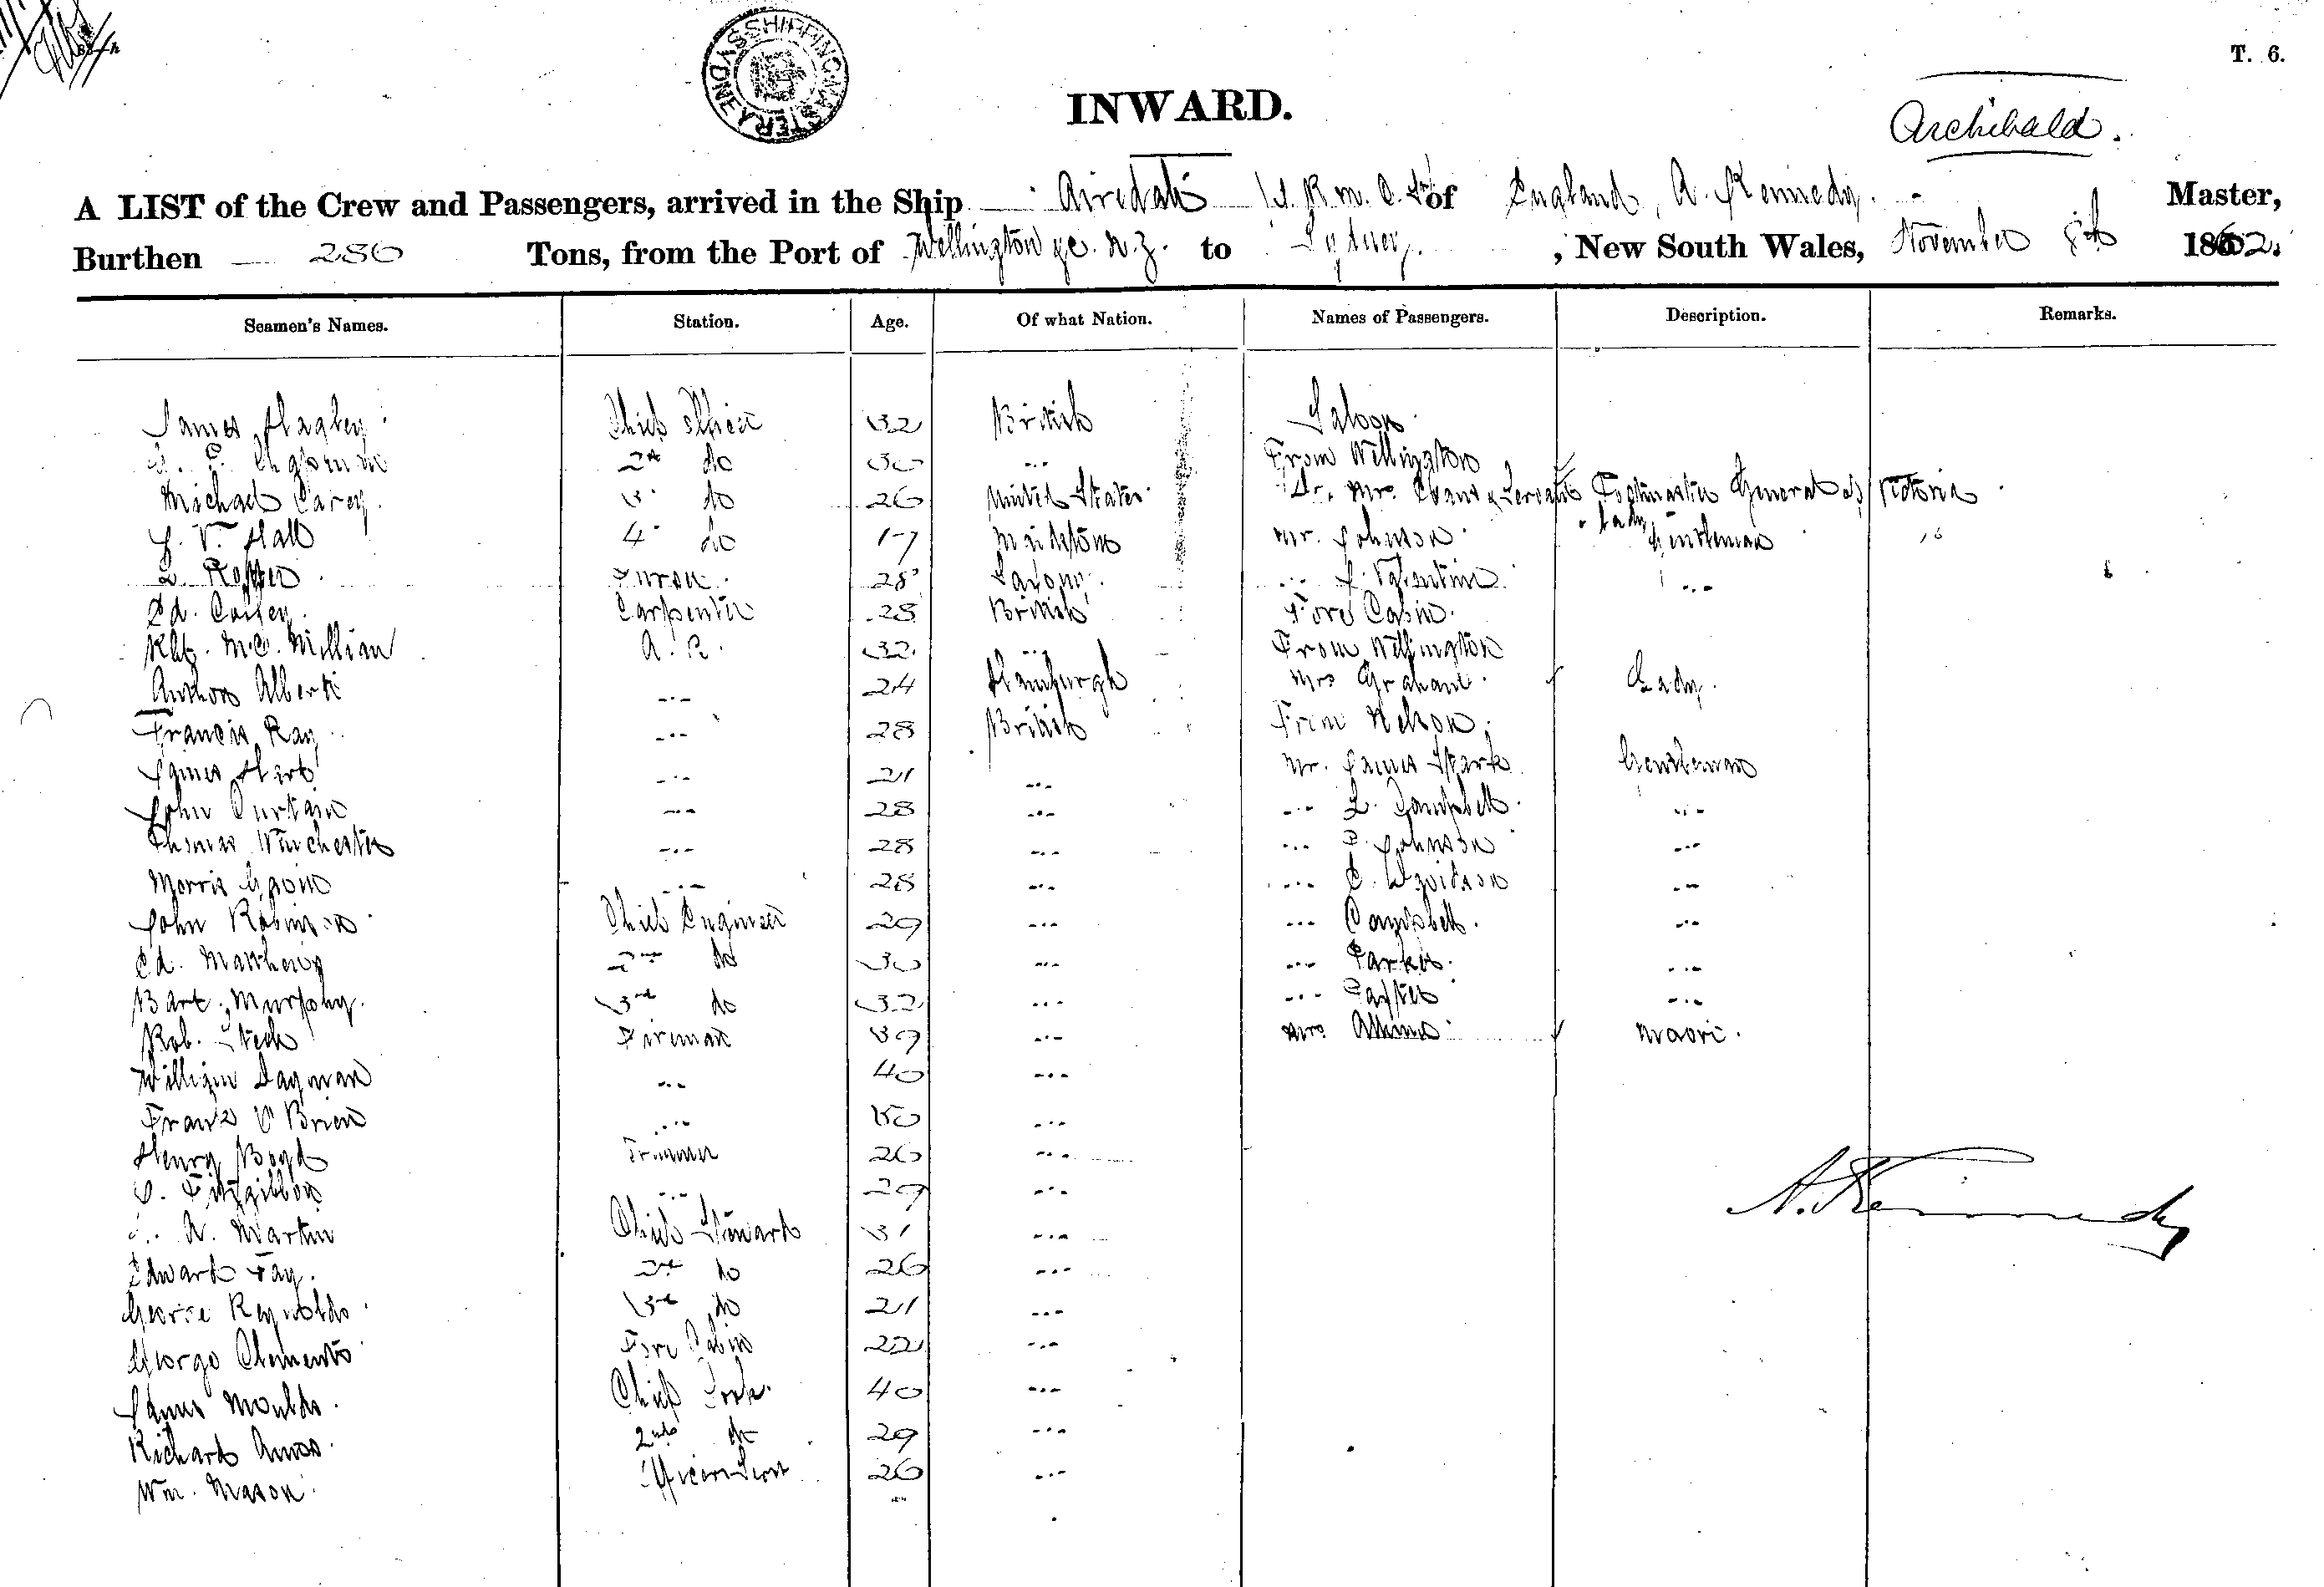 T. 6.
SHIPPING MASTER SYDNEY
INWARD.
Archibald.
A LIST of the Crew and Passengers, arrived in the Ship Airedale I. R. M. C. of England, A. Kennedy. Master,
Burthen 286 Tons, from the Port of Wellington &c. N.Z. to Sydney. , New South Wales, November 8th 1862.
Seamen's Names. Station. Age. Of what Nation. Names of Passengers. Description. Remarks.
James Hagley Chief Officer 32 British Saloon
2d do 30 " From Wellington
Michael Carey. 3 do 26 United States Mrs. Evans & Servant Postmaster General of Victoria
Lady
V. Hall 4 do 17 Maidstone Mr. Johnson Gentleman
28 Saxony. " Valentine "
Ed. Carpenter 28 British Fore Cabin.
Robt. McMillian A. B. 32 " From Wellington
Albert " 24 Hamburgh Mrs Graham. Lady.
Francis Ray " 28 British From Nelson.
James Hart " 21 " Mr. James Stark Gentleman
John Curtain " 28 " " L. Campbell "
Thomas Winchester " 28 " " Johnson "
Morris " 28 " " C. Davidson "
John Robinson Chief Engineer 29 " " Campbell. "
Ed. Matthews 2nd do 30 " " Parker. "
Bart. Murphy. 3rd do 32 " " "
Rob. Fireman 39 " Mrs. Maori.
William " 40 " 
Frank O'Brien " 50 "
Henry Boyd Trimmer 26 "
Fitzgibbon " 29 "
A. Martin Chief Steward 31 "
Edward Fay. 2d do 26 "
George Reynolds 3rd do 21 "
George Clements Fore Cabin 22 "
James Moulds. Chief Cook. 40 "
Richard Amos. 2nd do 29 "
Wm. Mason. 26 "
A. Kennedy